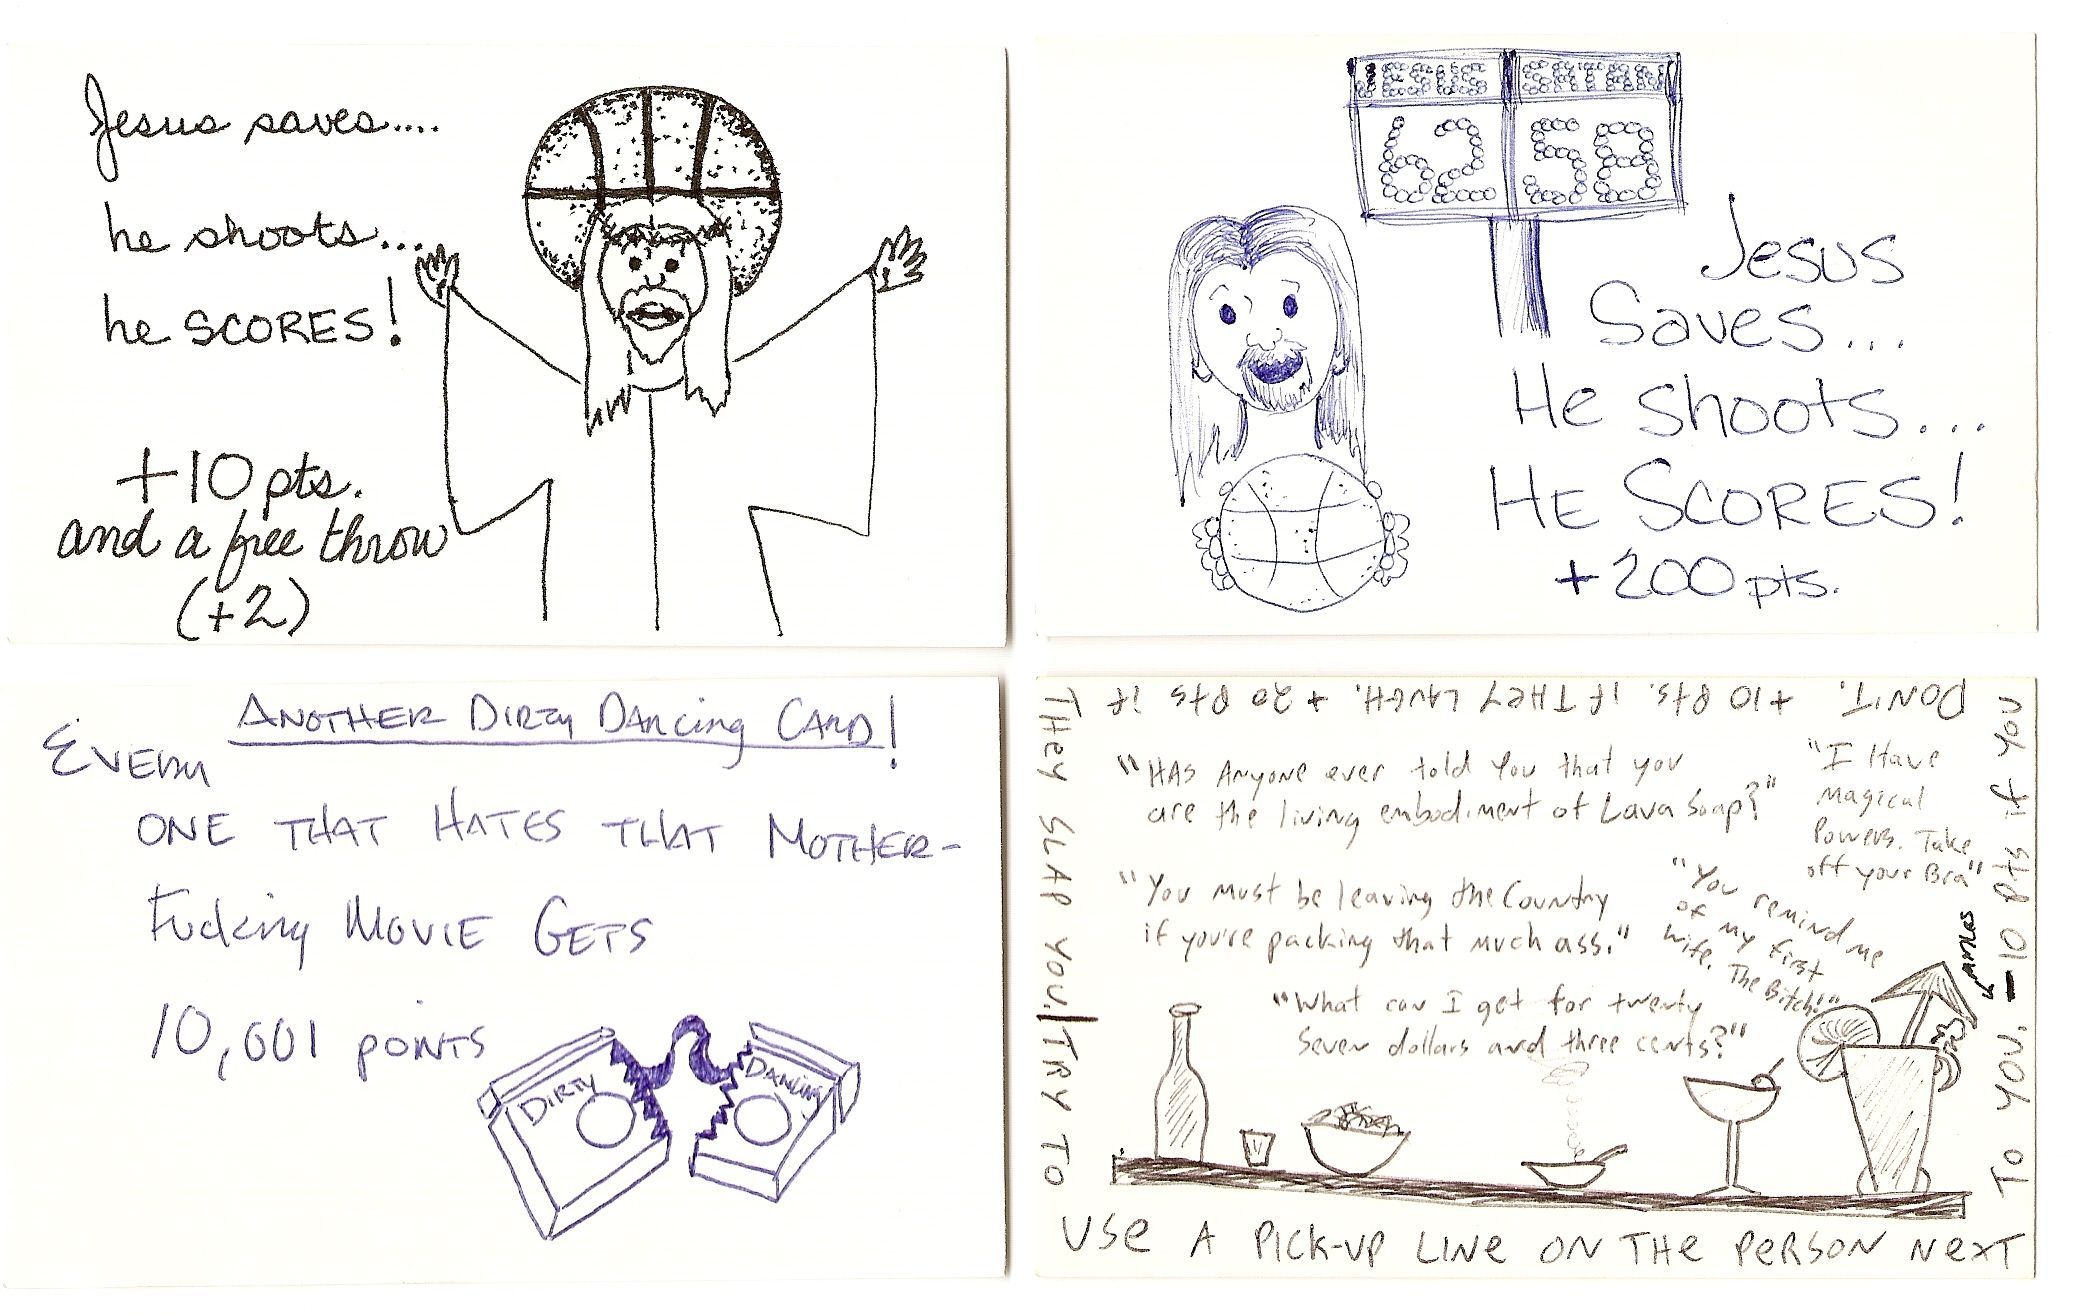 Jesus saves....
he shoots...
he SCORES!
+10 pts.
and a free throw
(+2)
JESUS SATAN
62 58
Jesus
Saves...
He shoots...
HE SCORES!
+200 pts.
ANOTHER DIRTY DANCING CARD!
EVERY
ONE THAT HATES THAT MOTHER-
FUCKING MOVIE GETS
10,001 POINTS
DIRTY DANCING
TRY TO
USE A PICK-UP LINE ON THE PERSON NEXT
TO YOU. -10 pts if you
DON'T. +10 pts. if THEY LAUGH. +20 pts if
THEY SLAP YOU.
"HAS Anyone ever told You that you
are the living embodiment of Lava Soap?"
"I Have
Magical
Powers. Take
off your Bra"
"You must be leaving the Country
if you're packing that much ass."
"You remind me
of my first
wife. The Bitch!"
"What can I get for twenty
Seven dollars and three cents?"